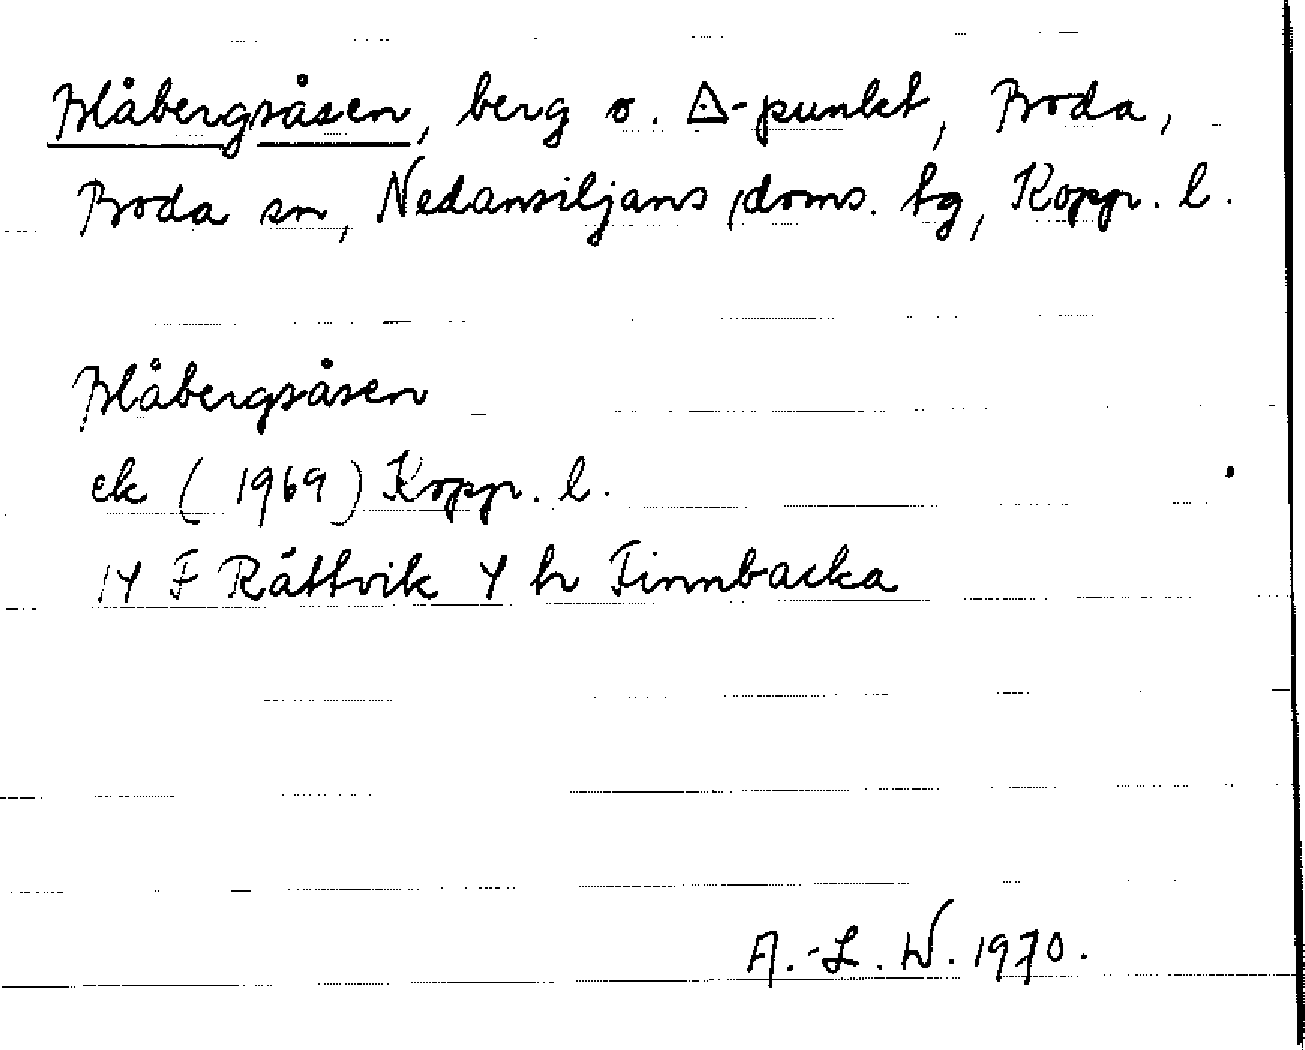 Blåbergsåsen, berg o. △-punkt, Boda,
Boda sn, Nedansiljans doms. tg, Kopp. l.
Blåbergsåsen
ek (1969) Kopp. l.
14 F Rättvik 4 h Finnbacka
A.-L. W. 1970.